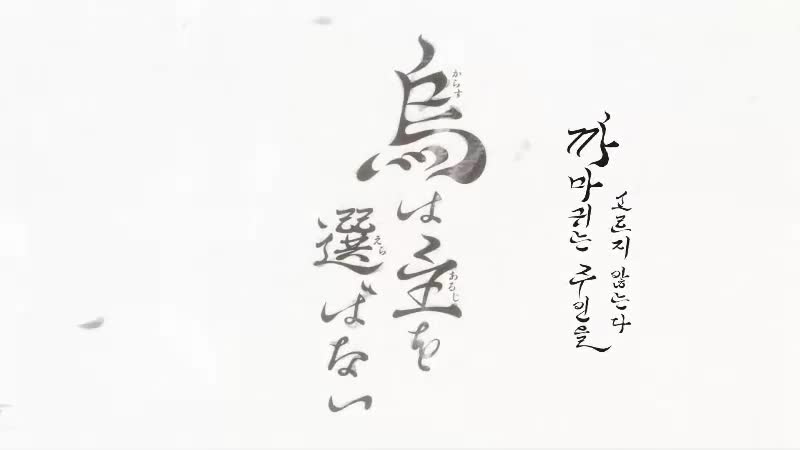 烏は主を
からす
あるじ
選ばない
えら
까마귀는 주인을
고르지 않는다